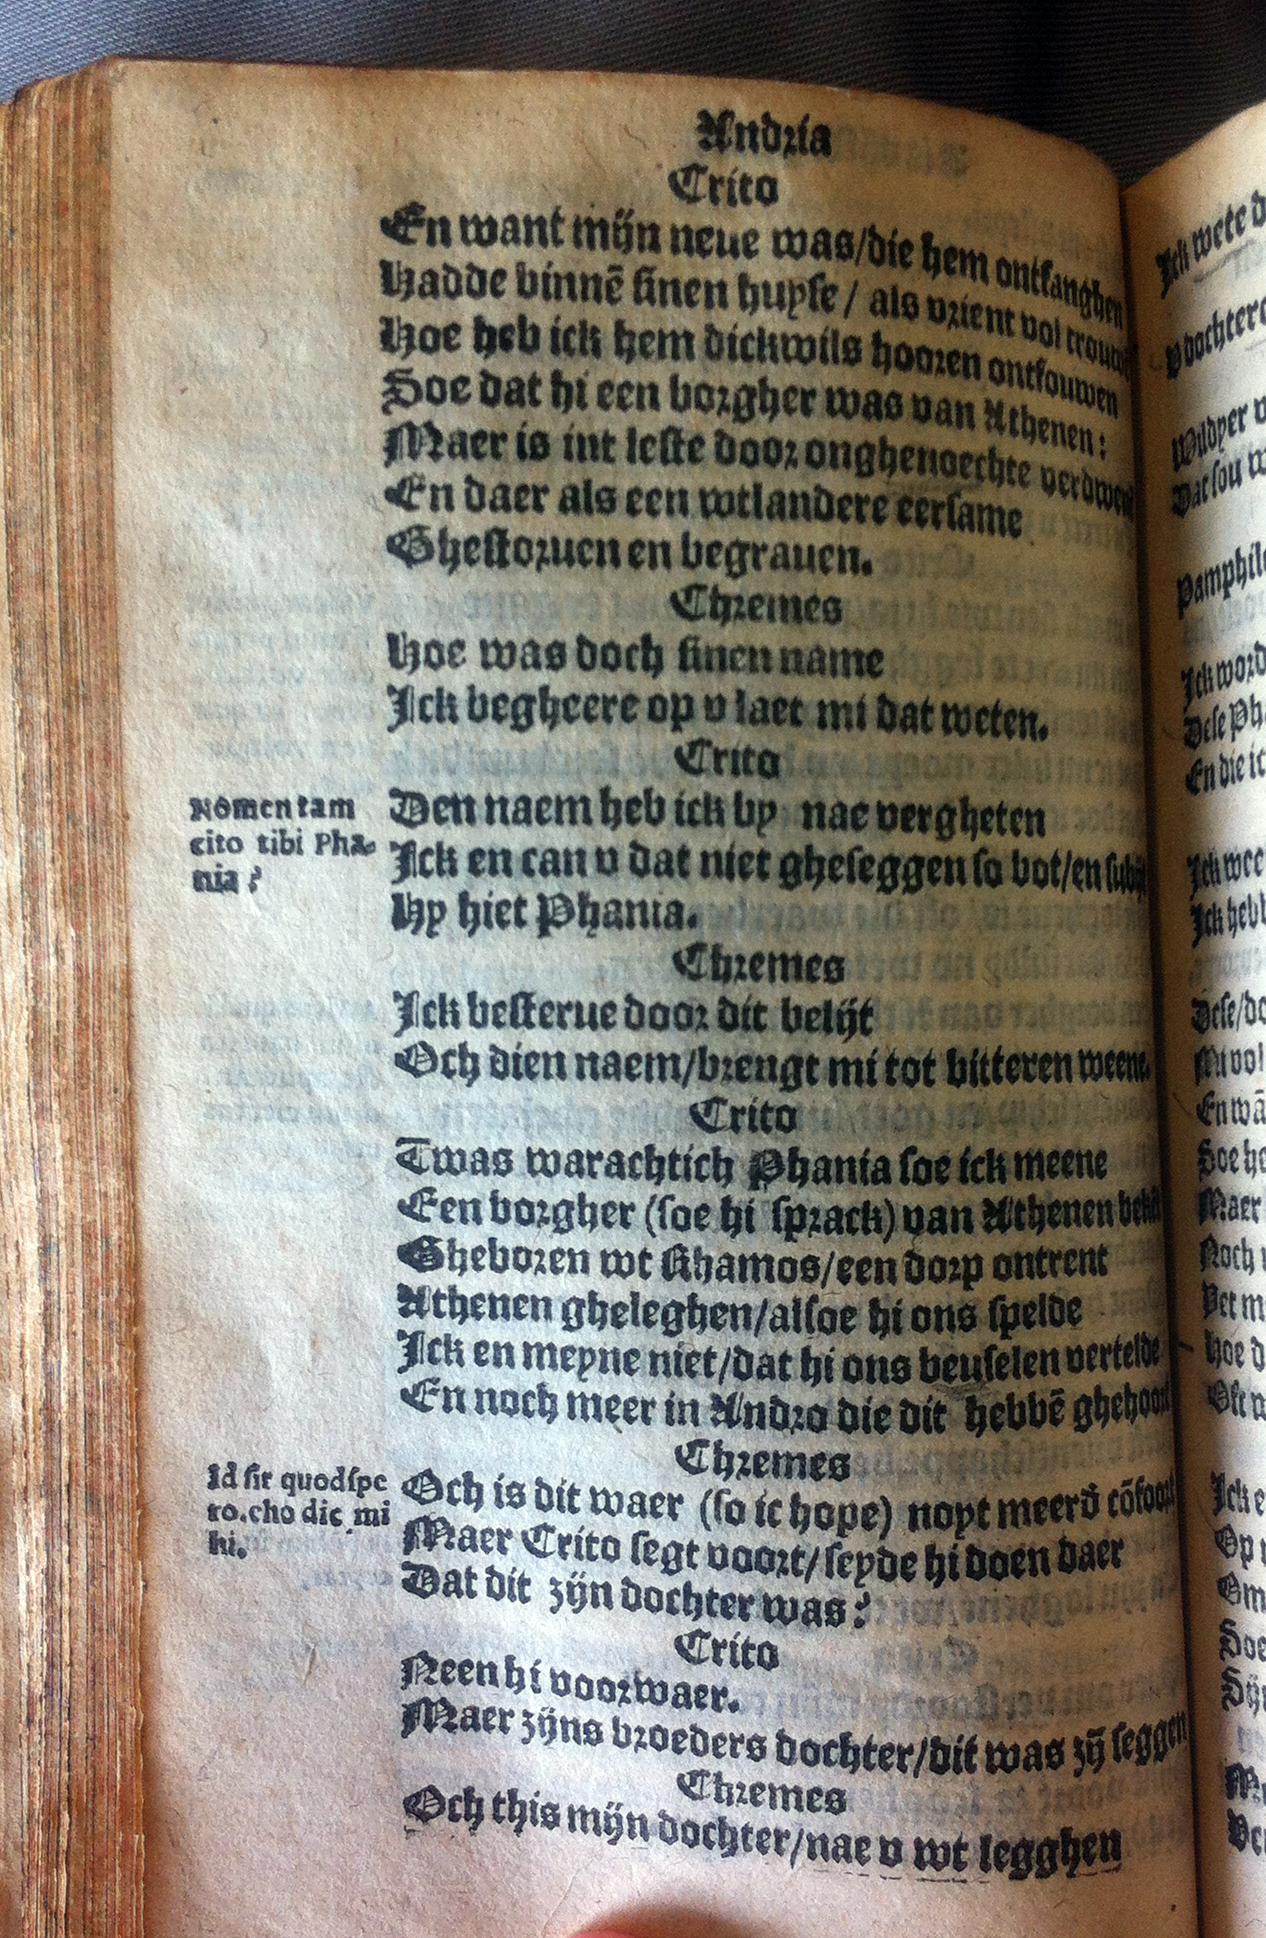 Andria
Crito
En want mijn neue was/die hem ontfanghen
Hadde binnē sinen huyse / als vrient vol trouwen
Hoe heb ick hem dickwils hooren ontfouwen
Soe dat hi een borgher was van Athenen:
Maer is int leste door onghenoechte verdwenen
En daer als een wtlandere eersame
Ghestoruen en begrauen.
Chremes
Hoe was doch sinen name
Ick begheere op v laet mi dat weten.
Crito
Nomen tam
cito tibi Phæ-
nia?
Den naem heb ick by nae vergheten
Ick en can v dat niet gheseggen so bot/en subijt
Hy hiet Phania.
Chremes
Ick besterue door dit belijt
Och dien naem/brengt mi tot bitteren weene.
Crito
Twas warachtich Phania soe ick meene
Een borgher (soe hi sprack) van Athenen
Gheboren wt Rhamos/een dorp ontrent
Athenen gheleghen/alsoe hi ons spelde
Ick en meyne niet/dat hi ons beuselen vertelde
En noch meer in Andro die dit hebbē ghehoort
Chremes
Id sit quod spe
ro.cho dic mi
hi.
Och is dit waer (so ic hope) noyt meerd̄ cōfoort
Maer Crito segt voort/seyde hi doen daer
Dat dit zijn dochter was?
Crito
Neen hi voorwaer.
Maer zijns broeders dochter/dit was zij̄ seggen
Chremes
Och this mijn dochter/nae v wt legghen
Ick wete
v dochter
Wildyer
Dat sou
Pamphile
Ick
Dese
En die
Ick
Ick hebb
Dese/
Mi
En wā
Soe
Maer
Noch
Vet
Hoe
Oft
Ick
Op
Om
Soe
Sij